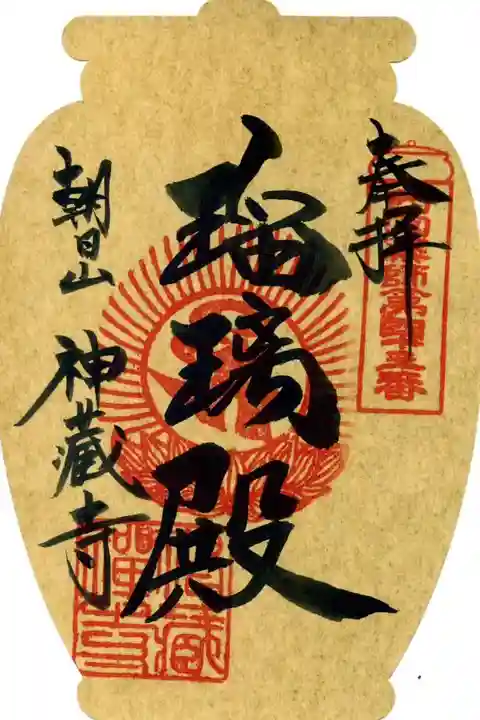 奉拝
瑠璃殿
朝日山 神蔵寺